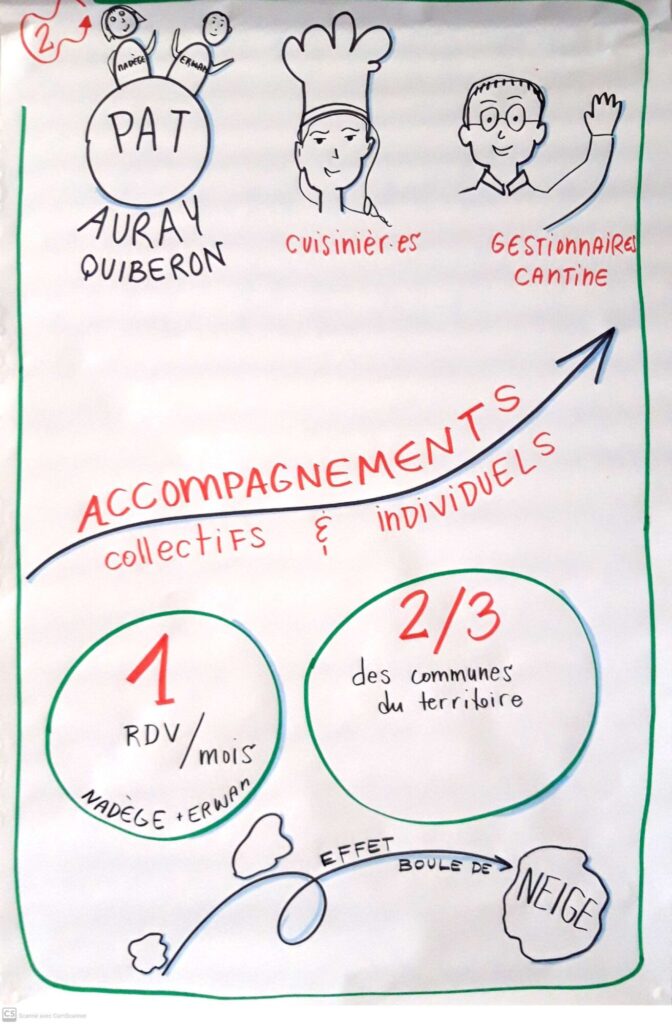 2
NADÈGE
ERWAN
PAT
AURAY
QUIBERON
CUISINIÈR·ES
GESTIONNAIRES
CANTINE
ACCOMPAGNEMENTS
COLLECTIFS & INDIVIDUELS
1
RDV/MOIS
NADÈGE + ERWAN
2/3
des communes
du territoire
EFFET
BOULE DE
NEIGE
CS Scanné avec CamScanner